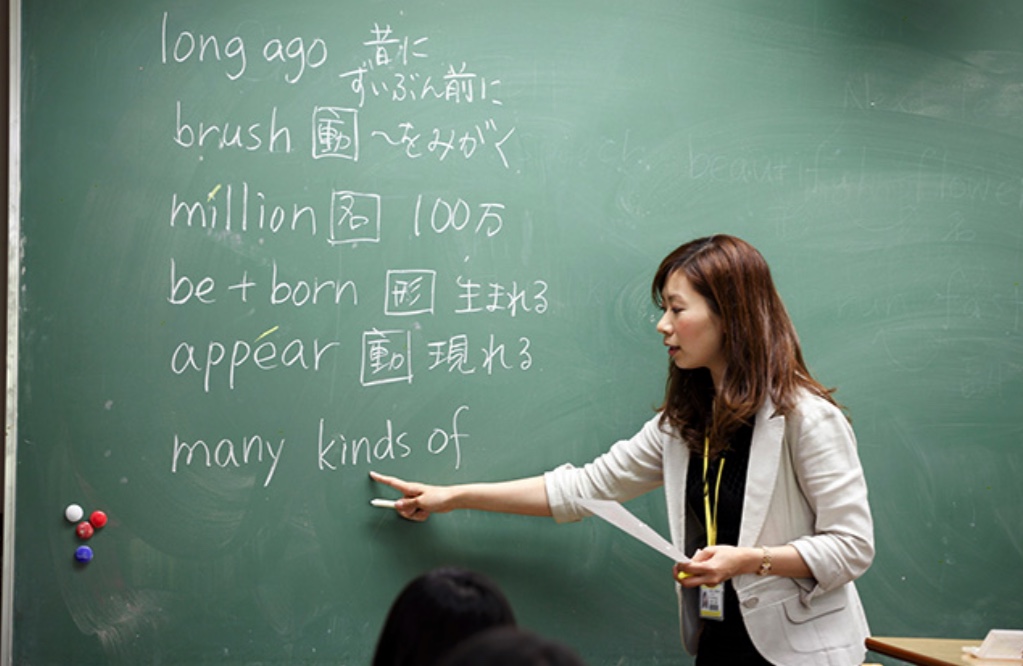 long ago 昔に
ずいぶん前に
brush 動 ～をみがく
million 名 100万
be + born 形 生まれる
appear 動 現れる
many kinds of
beautiful flower